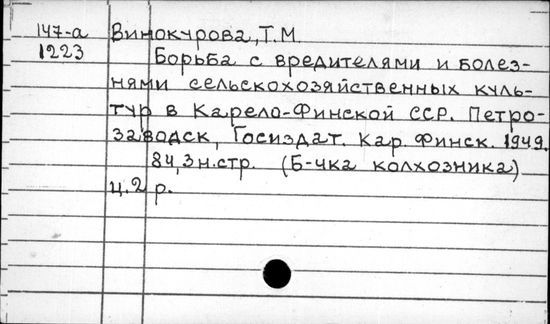 147-а Винокурова, Т.М.
1223 Борьба с вредителями и болез-
нями сельскохозяйственных куль-
тур в Карело-Финской ССР. Петро-
заводск, Госиздат. Кар. Финск. 1949.
84,3 н.стр. (Б-чка колхозника)
ц. 2 р.